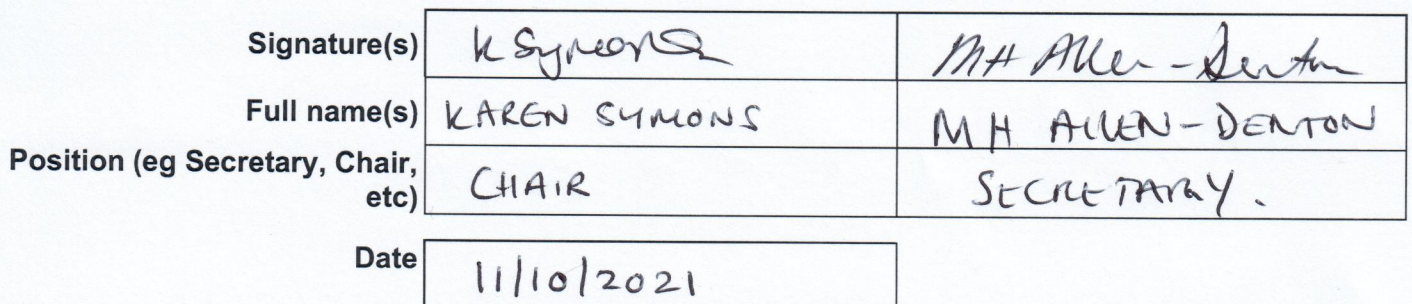 Signature(s) K Symons MH Allen-Denton
Full name(s) KAREN SYMONS MH ALLEN-DENTON
Position (eg Secretary, Chair, etc) CHAIR SECRETARY.
Date 11/10/2021